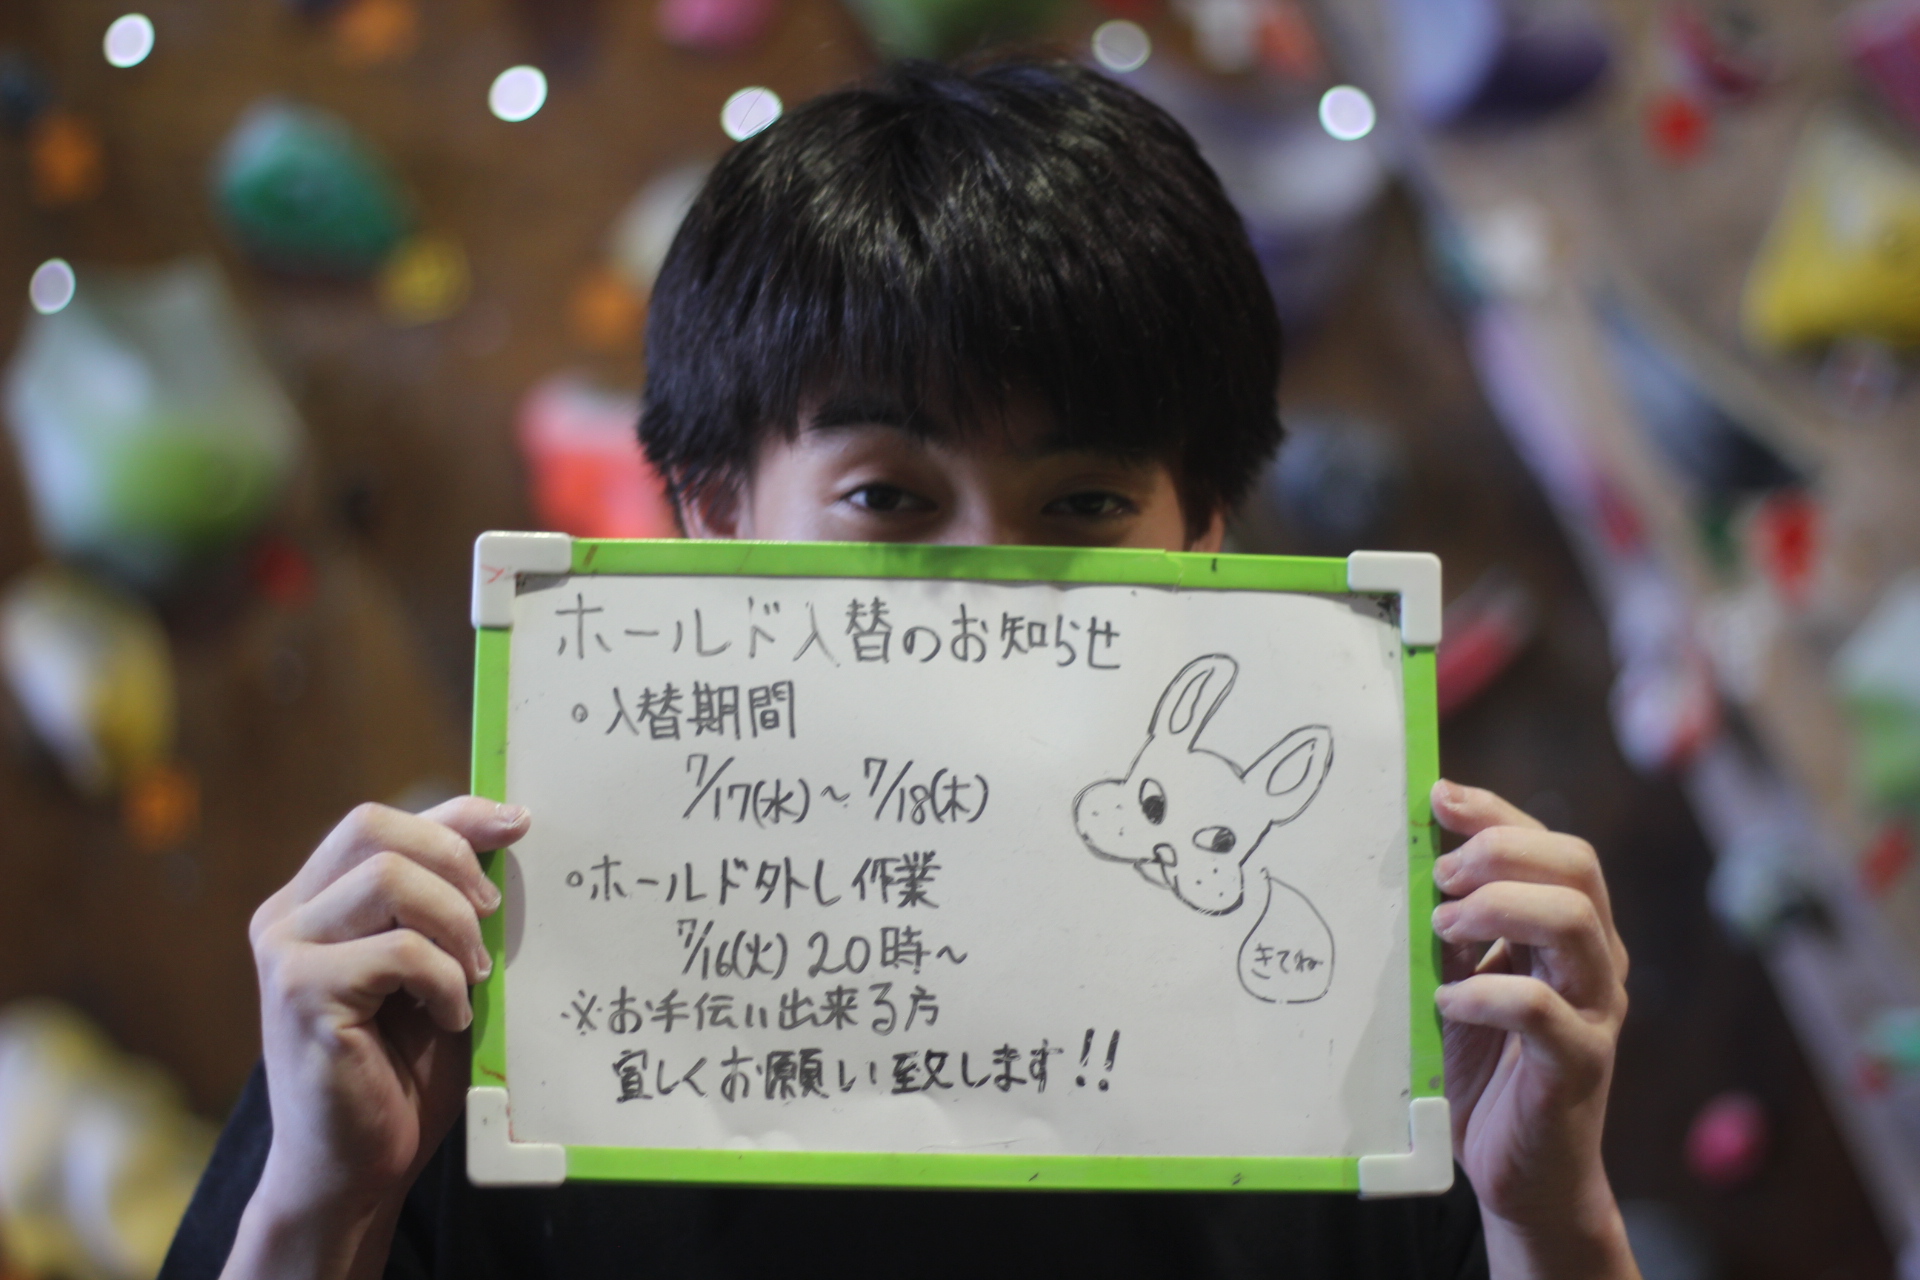 ホールド入替のお知らせ
○入替期間
7/17(水)~7/18(木)
○ホールド外し作業
7/16(火)20時~
※お手伝い出来る方
宜しくお願い致します!!
きてね